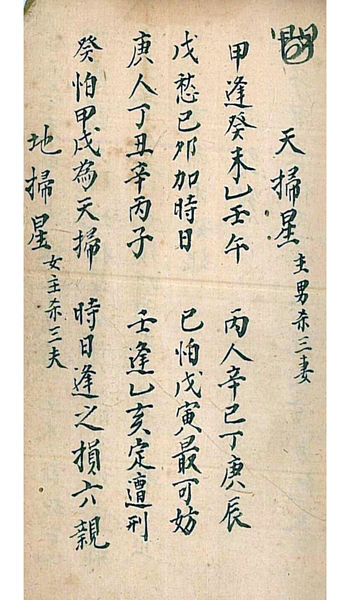 天掃星 主男杀三妻
甲逢癸未乙壬午 丙人辛巳丁庚辰
戊愁己卯加時日 己怕戊寅最可妨
庚人丁丑辛丙子 壬逢乙亥定遭刑
癸怕甲戌為天掃 時日逢之損六親
地掃星 女主杀三夫